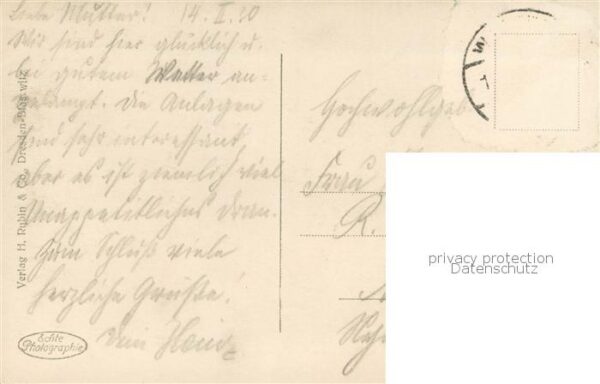 Liebe Mutter! 14. II. 20
Wir sind hier glücklich u.
bei gutem Wetter an-
gelangt. Die Anlagen
sind sehr interessant
aber es ist ziemlich viel
Unappetitliches dran.
Zum Schluß viele
herzliche Grüße!
Dein Heinz
Verlag H. Rubin & Co., Dresden-Blasewitz
Echte
Photographie
Hochwohlgeb
Frau
R.
privacy protection
Datenschutz